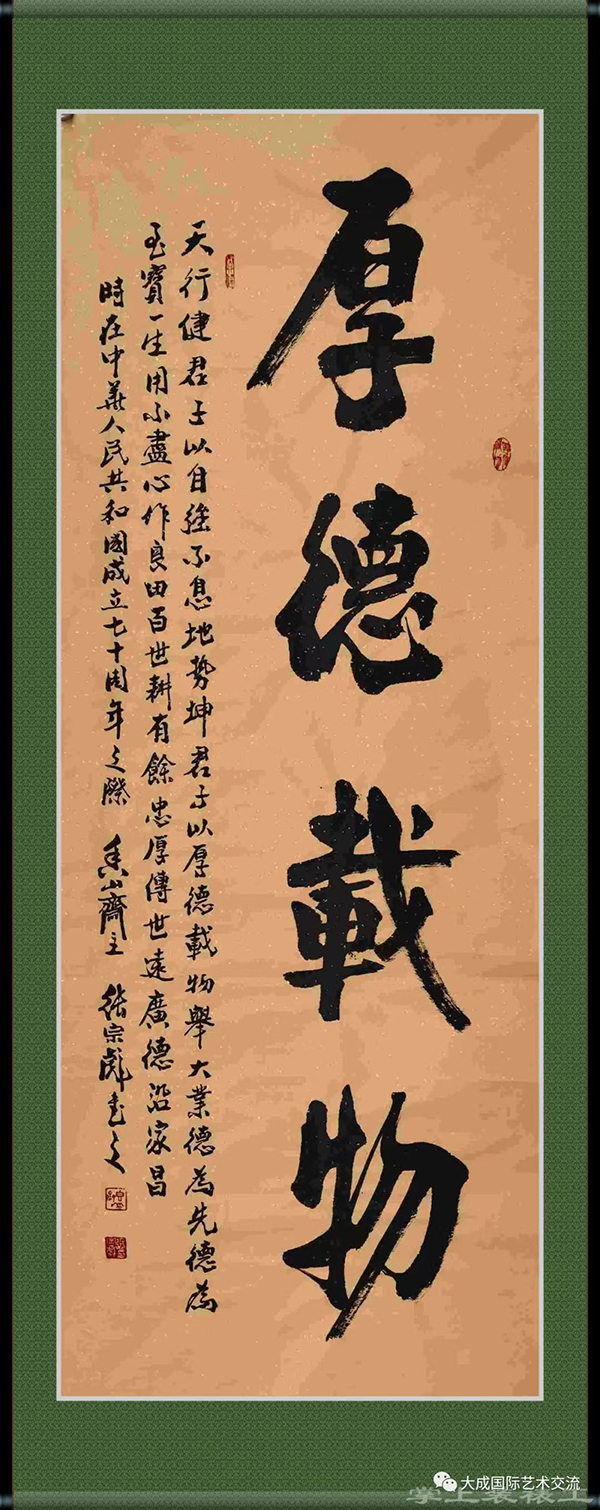 厚德載物
天行健君子以自強不息地势坤君子以厚德載物舉大業德為先德為
至寳一生用不盡心作良田百世耕有餘忠厚傳世遠廣德沿家昌
時在中華人民共和國成立七十周年之際 香山齋主 張宗彪書之
大成国际艺术交流
掌上装裱工